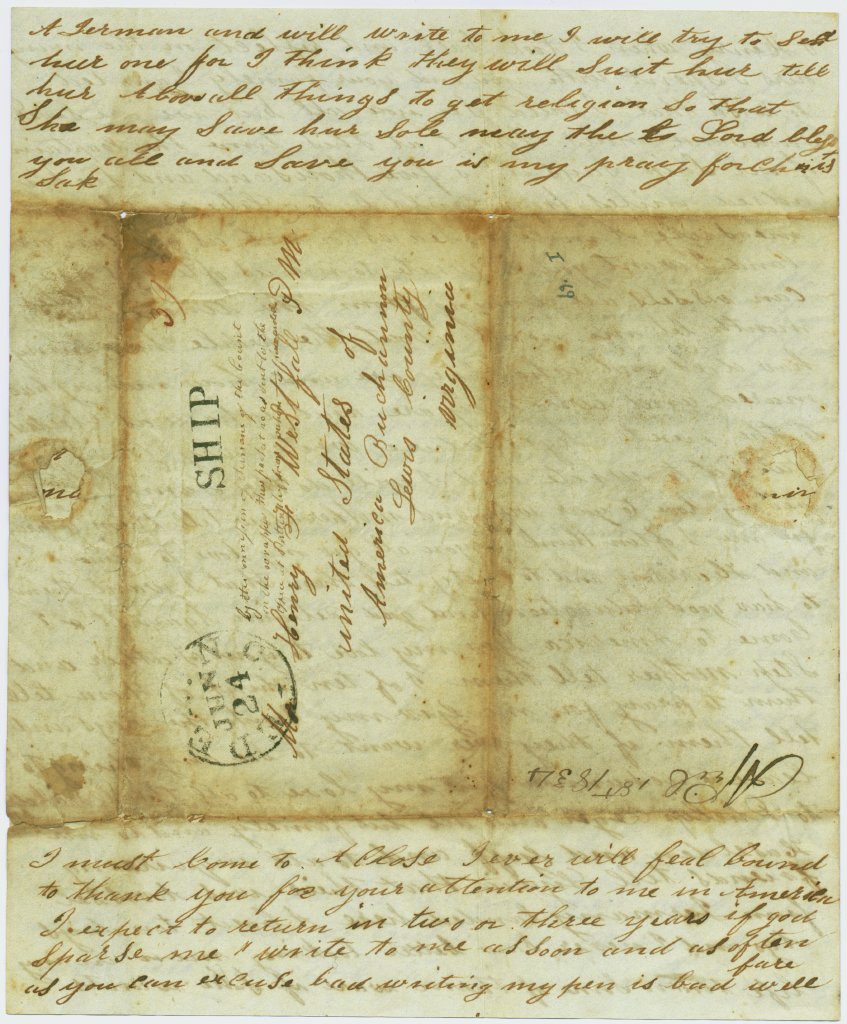 A German and will write to me I will try to Sell
hur one for I think they will Suit hur tell
hur Abov all things to get religion So that
She may Save hur Sole may the Lord bless
you all and Save you is my pray for Christ
Sak
31
SHIP
in the wrapper this packet was sent to the
Mr Henry F Westfall P M
united States of
America Buchannon
Lewis County
virginia
JUN
24
April 1st 1834
I must Come to A Close I ever will feal bound
to thank you for your attention to me in America
I expect to return in two or three years if god
Sparse me write to me as soon and as often
as you can excuse bad writing my pen is bad fare well